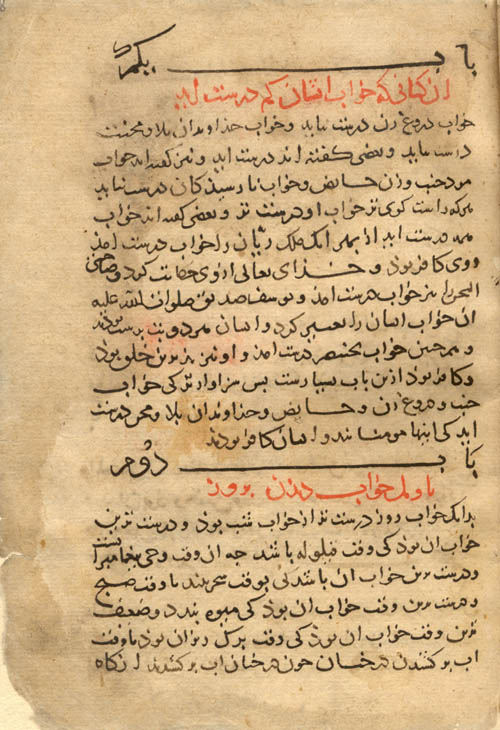 باب یکم
ان کسانی که خواب ایشان کم درست اید
خواب دروغ زن درست نیاید و خواب خداوندان بلا و محنت
راست نیاید و بعضی گفته اند درست اید و نیز گفته اند خواب
مرد جنب و زن حایض و خواب نارسیدگان درست نیاید
هرکه راست کوی تر خواب او درست تر و بعضی گفته اند خواب
همه درست اید از بهر انک ملک ریّان را خواب درست امذ
ووی کافر بوذ و خذای تعالی ازوی حکایت کرد و صاحبی
السجن را نیز خواب درست امذ و یوسف صدیق صلوات الله علیه
ان خواب ایشان را تعبیر کرد و ایشان هر دو بت پرست بوذند
و همچنین خواب بختنصر درست امذ و او نیز بترین خلق بوذ
و کافر بوذ ازین باب بسیارست پس سزاوارتر کی خواب
جنب و دروغ زن و حایض و خداوندان بلا و محن درست
اید کی اینها مومنانند و ایشان کافر بوذند
باب دوم
تاویل خواب دیدن بروز
بدانک خواب روز درست تر از خواب شب بوذ و درست ترین
خواب ان بوذ کی وقت قیلوله باشد چه ان وقت وحی پیغامبرانست
و درست ترین خواب ان باشد کی بوقت سحر بیند تا وقت صبح
و درست ترین وقت خواب ان بوذ کی میوه بندد و ضعیف
ترین وقت خواب ان بوذ کی وقت برک ریزان بوذ تا وقت
اب برکشیدن درختان چون درختان اب برکشند انکاه